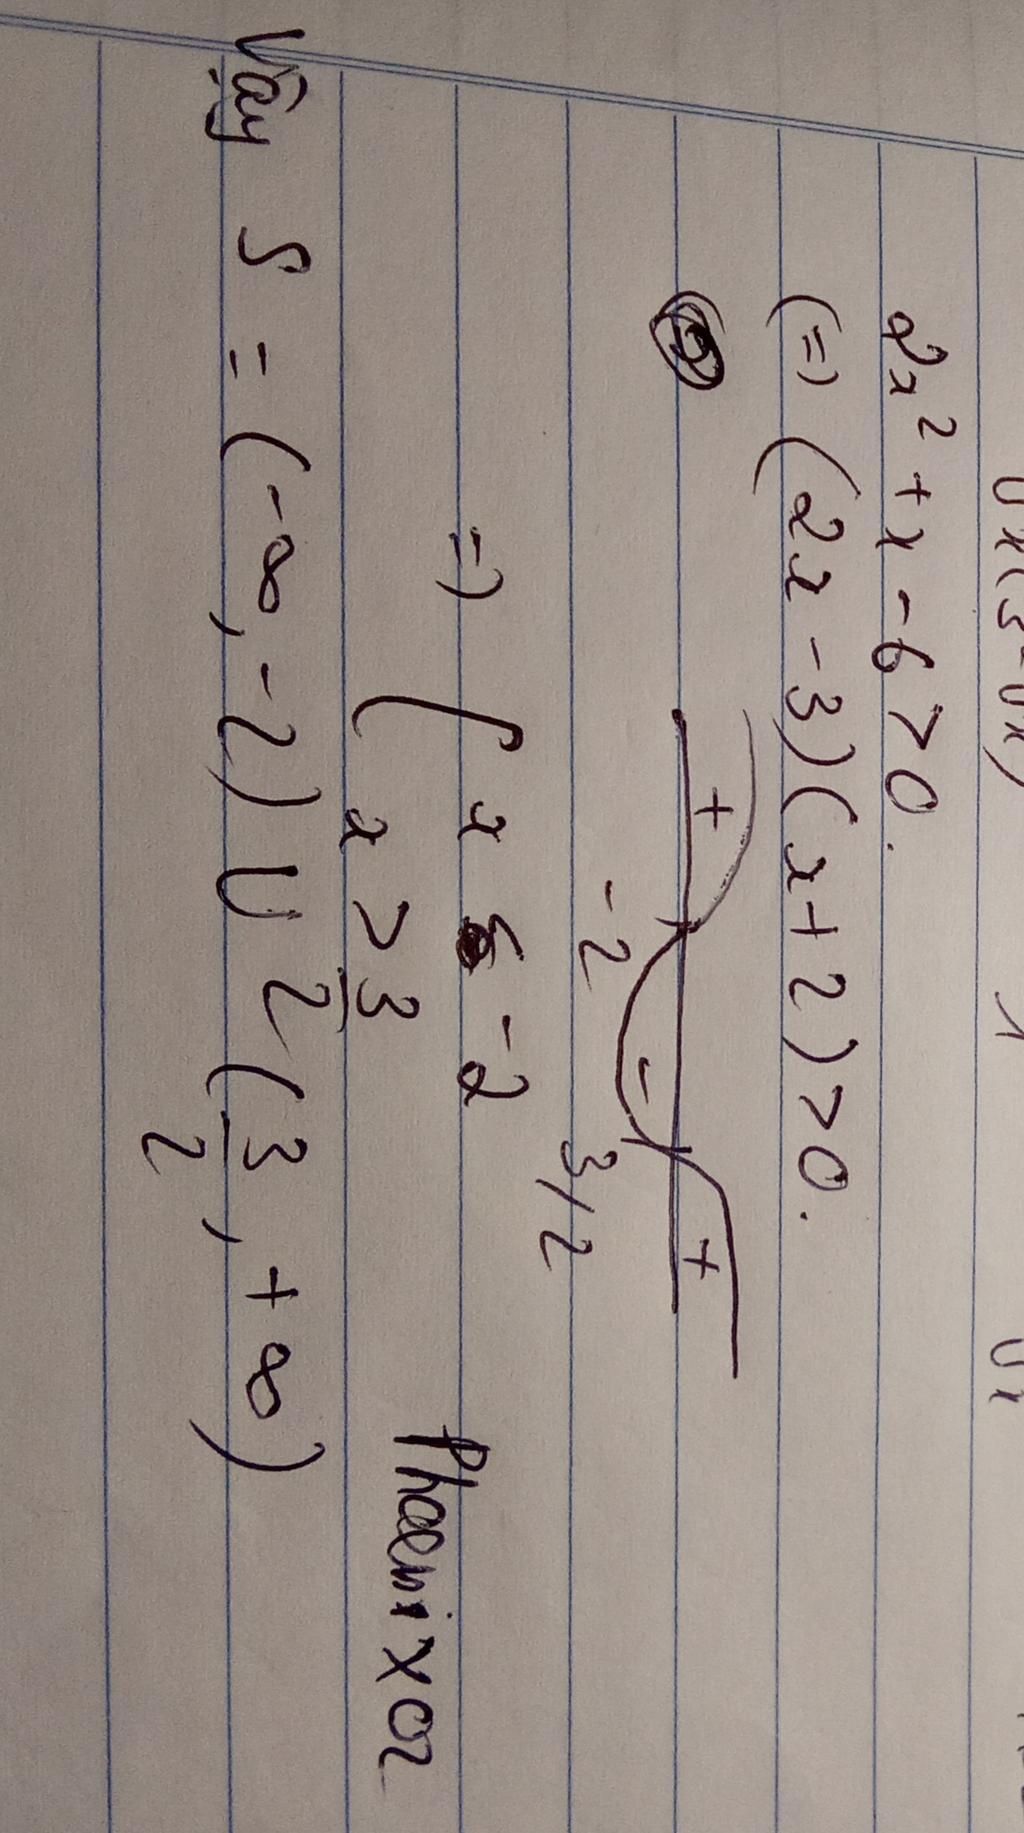 2x² + x - 6 > 0.
(=) (2x - 3)(x + 2) > 0.
+ - +
-2 3/2
=) { x < -2
x > 3/2
Phoenixoz
Vậy S = (-∞, -2) U (3/2, +∞)